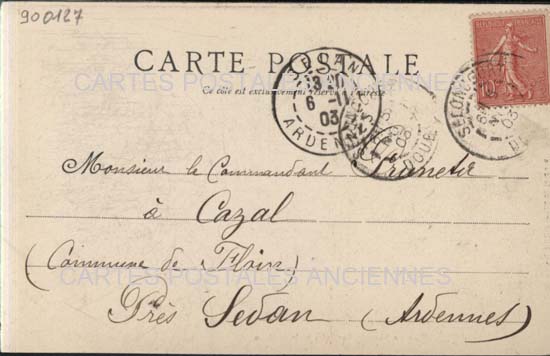 900127
CARTE POSTALE
Ce côté est exclusivement réservé à l'adresse
SEDAN
6 -11
03
ARDENNES
SELONCOURT
03
DOUBS
Monsieur le Commandant
à Cazal
(Commune de Floing)
Près Sedan (Ardennes)
CARTES POSTALES ANCIENNES
CARTES POSTALES ANCIENNES